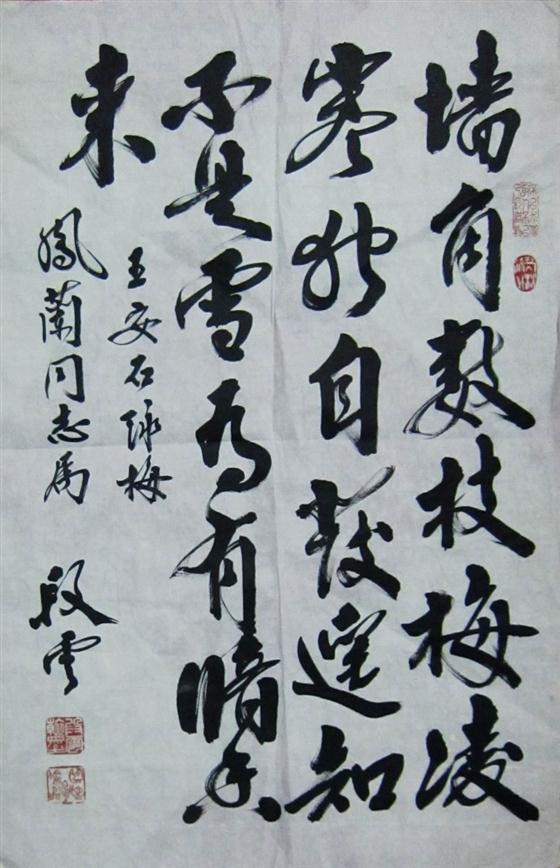 墙角数枝梅凌
寒独自發遥知
不是雪为有暗香
来
王安石詠梅
鳳蘭同志属
段云